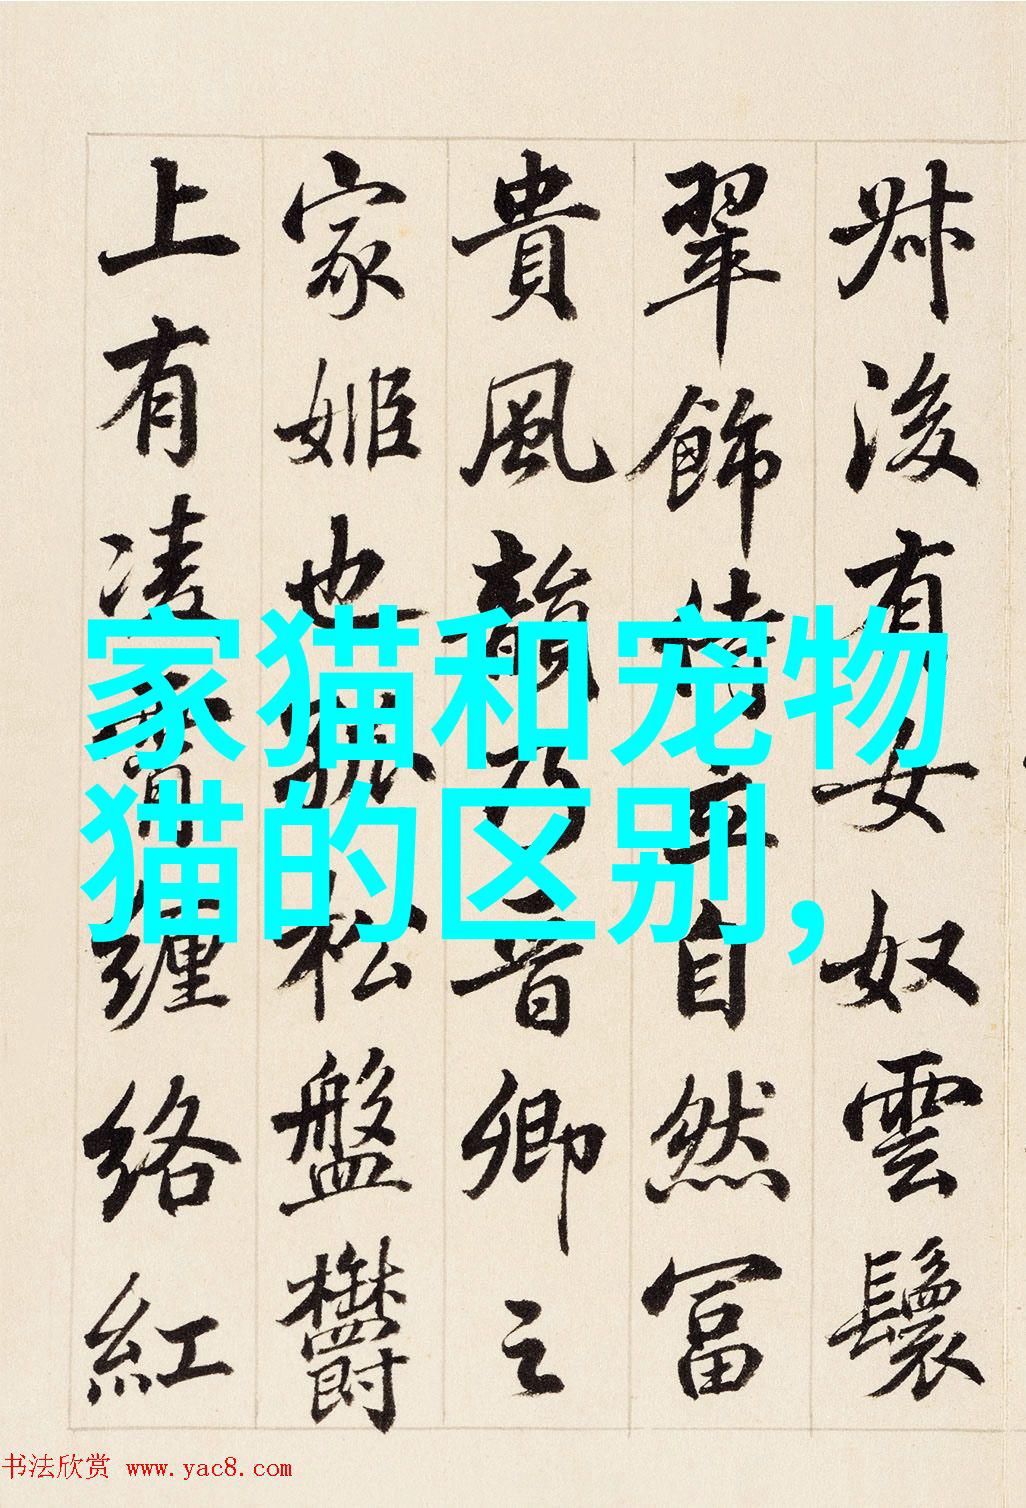 家猫和宠物
猫的区别,
叔後有女奴雲鬟
翠飾侍立自然富
貴風韻乃晉卿之
家姬也孤松盤欝
上有凌霄纏絡紅
书法欣赏 www.yac8.com